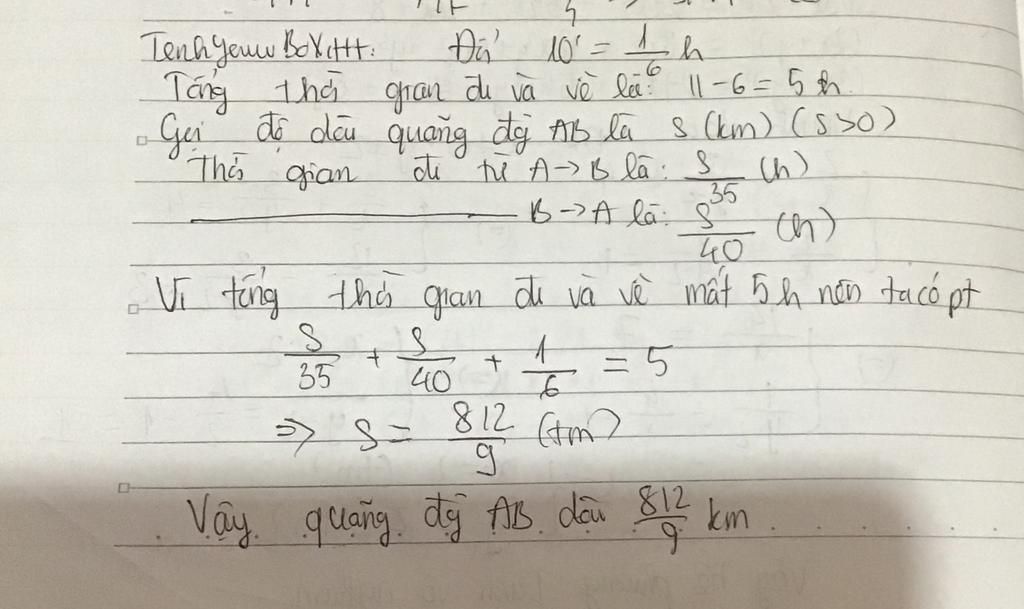 TenhYeuuBoXıttt. Đổi 10' = 1/6 h
Tổng thời gian đi và về là: 11 - 6 = 5 h.
Gọi độ dài quãng đg AB là S (km) (S>0)
Thời gian đi từ A → B là: S/35 (h)
B → A là: S/40 (h)
Vì tổng thời gian đi và về mất 5 h nên ta có pt
S/35 + S/40 + 1/6 = 5
=> S = 812/9 (tm)
Vậy quãng đg AB dài 812/9 km